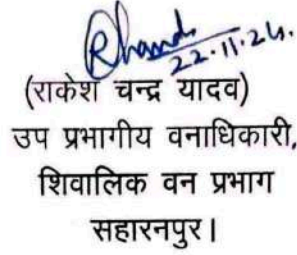 22.11.24.
(राकेश चन्द्र यादव)
उप प्रभागीय वनाधिकारी,
शिवालिक वन प्रभाग
सहारनपुर।